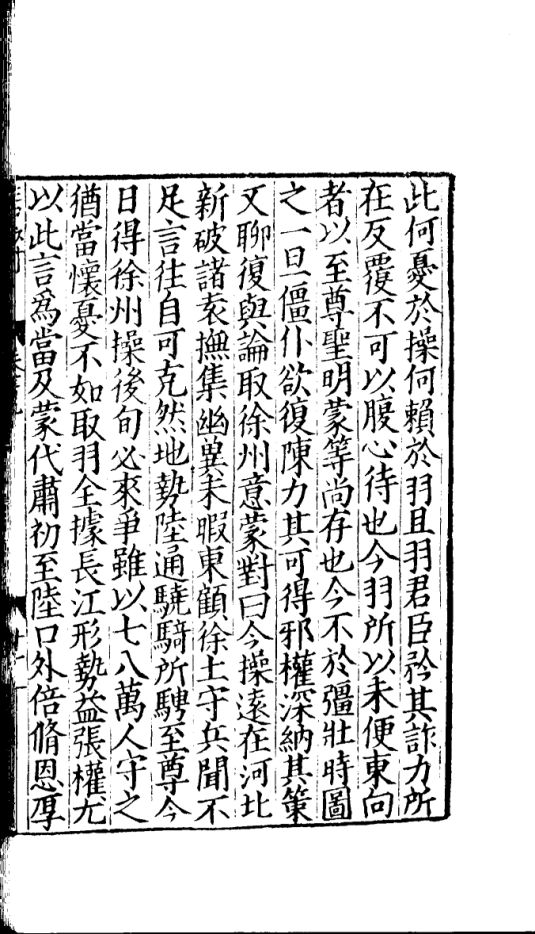 此何憂於操何賴於羽且羽君臣矜其詐力所
在反覆不可以腹心待也今羽所以未便東向
者以至尊聖明蒙等尚存也今不於彊壯時圖
之一旦僵仆欲復陳力其可得邪權深納其策
又聊復與論取徐州意蒙對曰今操遠在河北
新破諸袁撫集幽兾未暇東顧徐土守兵聞不
足言往自可克然地勢陸通驍騎所騁至尊今
日得徐州操後旬必來爭雖以七八萬人守之
猶當懷憂不如取羽全據長江形勢益張權尤
以此言爲當及蒙代肅初至陸口外倍脩恩厚